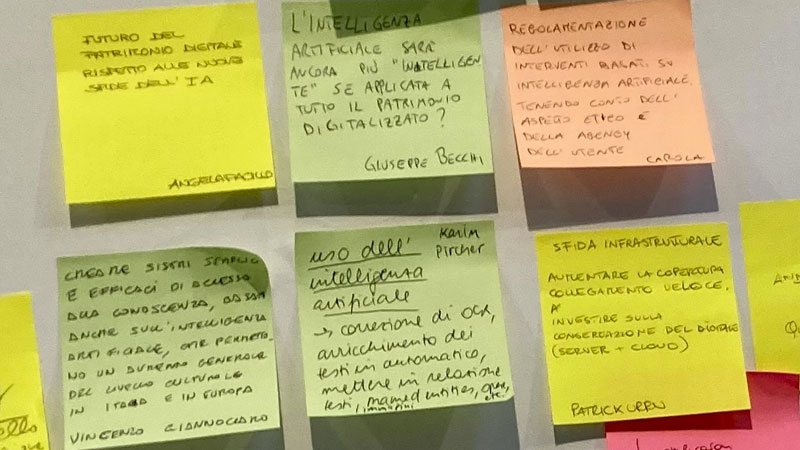 FUTURO DEL
PATRIMONIO DIGITALE
RISPETTO ALLE NUOVE
SFIDE DELL'IA
L'INTELLIGENZA
ARTIFICIALE SARÀ
ANCORA PIÙ "INTELLIGEN
TE" SE APPLICATA A
TUTTO IL PATRIMONIO
DIGITALIZZATO?
GIUSEPPE BECCHI
REGOLAMENTAZIONE
DELL'UTILIZZO DI
INTERVENTI BASATI SU
INTELLIGENZA ARTIFICIALE,
TENENDO CONTO DELL'
ASPETTO ETICO E
DELLA AGENCY
DELL'UTENTE
CAROLA
CREARE SISTEMI SEMPLICI
E EFFICACI DI ACCESSO
ALLA CONOSCENZA, BASATI
ANCHE SULL'INTELLIGENZA
ARTIFICIALE, CHE PERMETTO-
NO UN AUMENTO GENERALE
DEL LIVELLO CULTURALE
IN ITALIA E IN EUROPA
VINCENZO GIANNOCCARO
Karin
Pircher
uso dell'
intelligenza
artificiale
→ correzione di OCR,
arricchimento dei
testi in automatico,
mettere in relazione
testi, immagini, named entities, opere,
etc.
SFIDA INFRASTRUTTURALE
AUMENTARE LA COPERTURA
COLLEGAMENTO VELOCE.
INVESTIRE SULLA
CONSERVAZIONE DEL DIGITALE
(SERVER + CLOUD)
PATRICK URRU